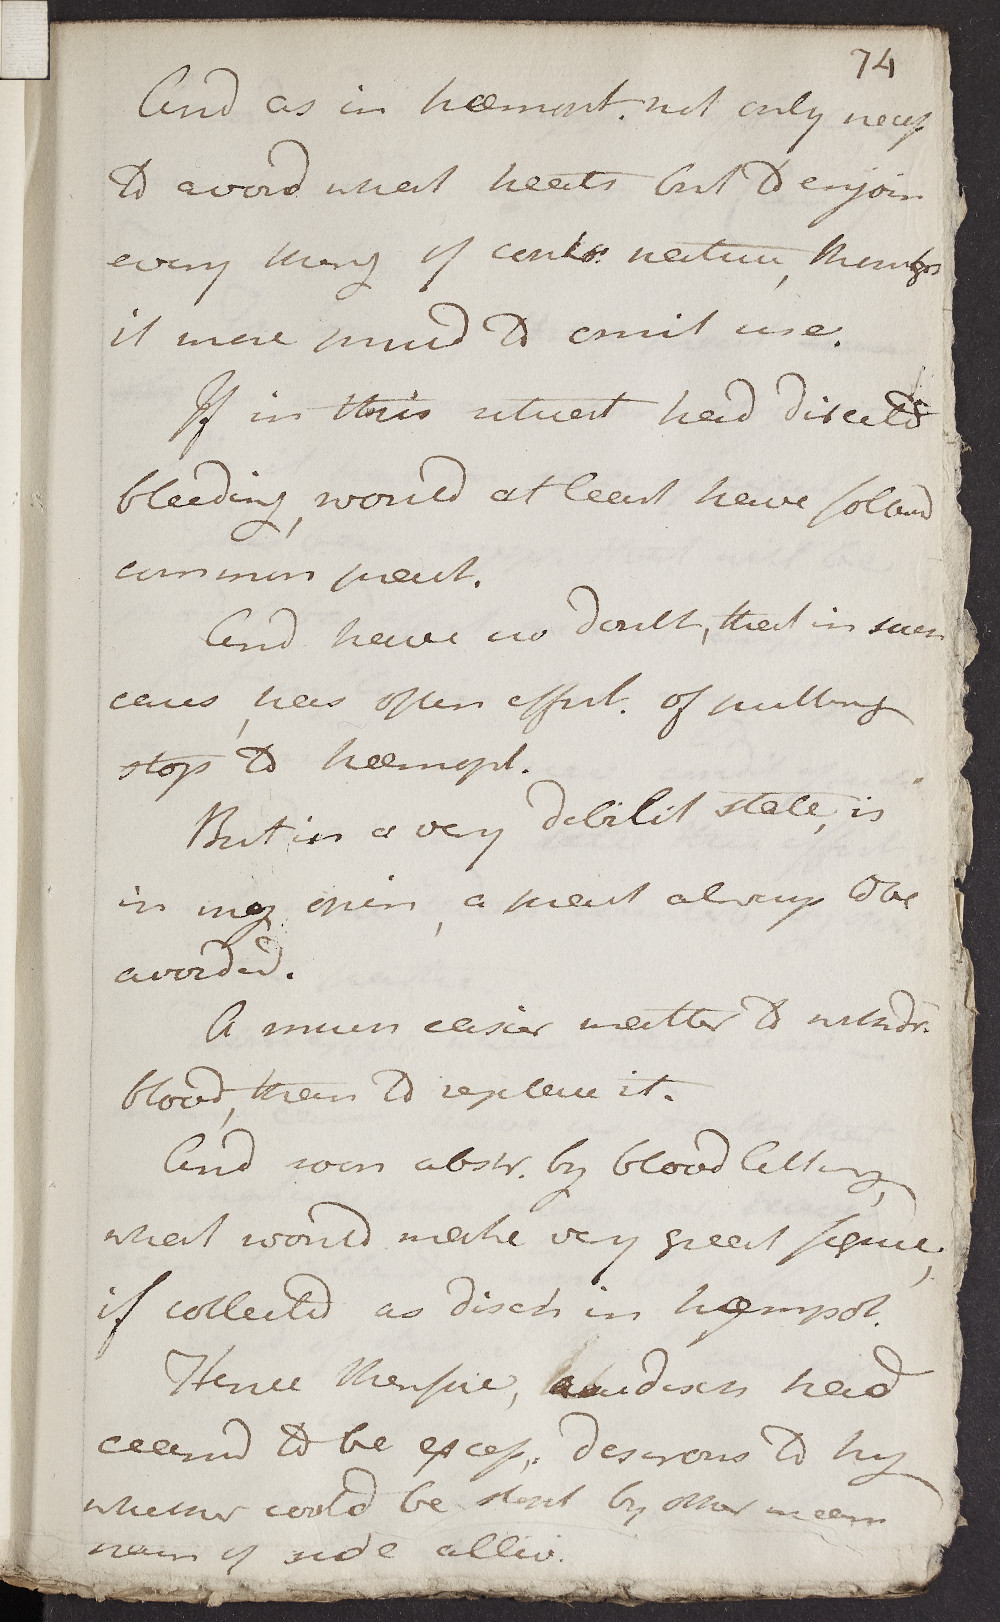 74
And as in hæmopt. not only necess
to avoid what heats but to enjoin
every thing of contr. nature,
it were prud to omit use.
If in this situat had directed
bleeding, would at least have follow'd
common pract.
And have no doubt, that in such
cases, has often effect. of putting
stop to hæmopt.
But in a very debilit state, is
in my opin, a pract always to be
avoided.
A much easier matter to withdr.
blood, than to replace it.
And soon abstr. by blood letting,
what would make very great figure,
if collected as disch in hæmopt.
Hence therefore, disch had
ceasd to be excess, desirous to try
whether could be stopt by other means
of